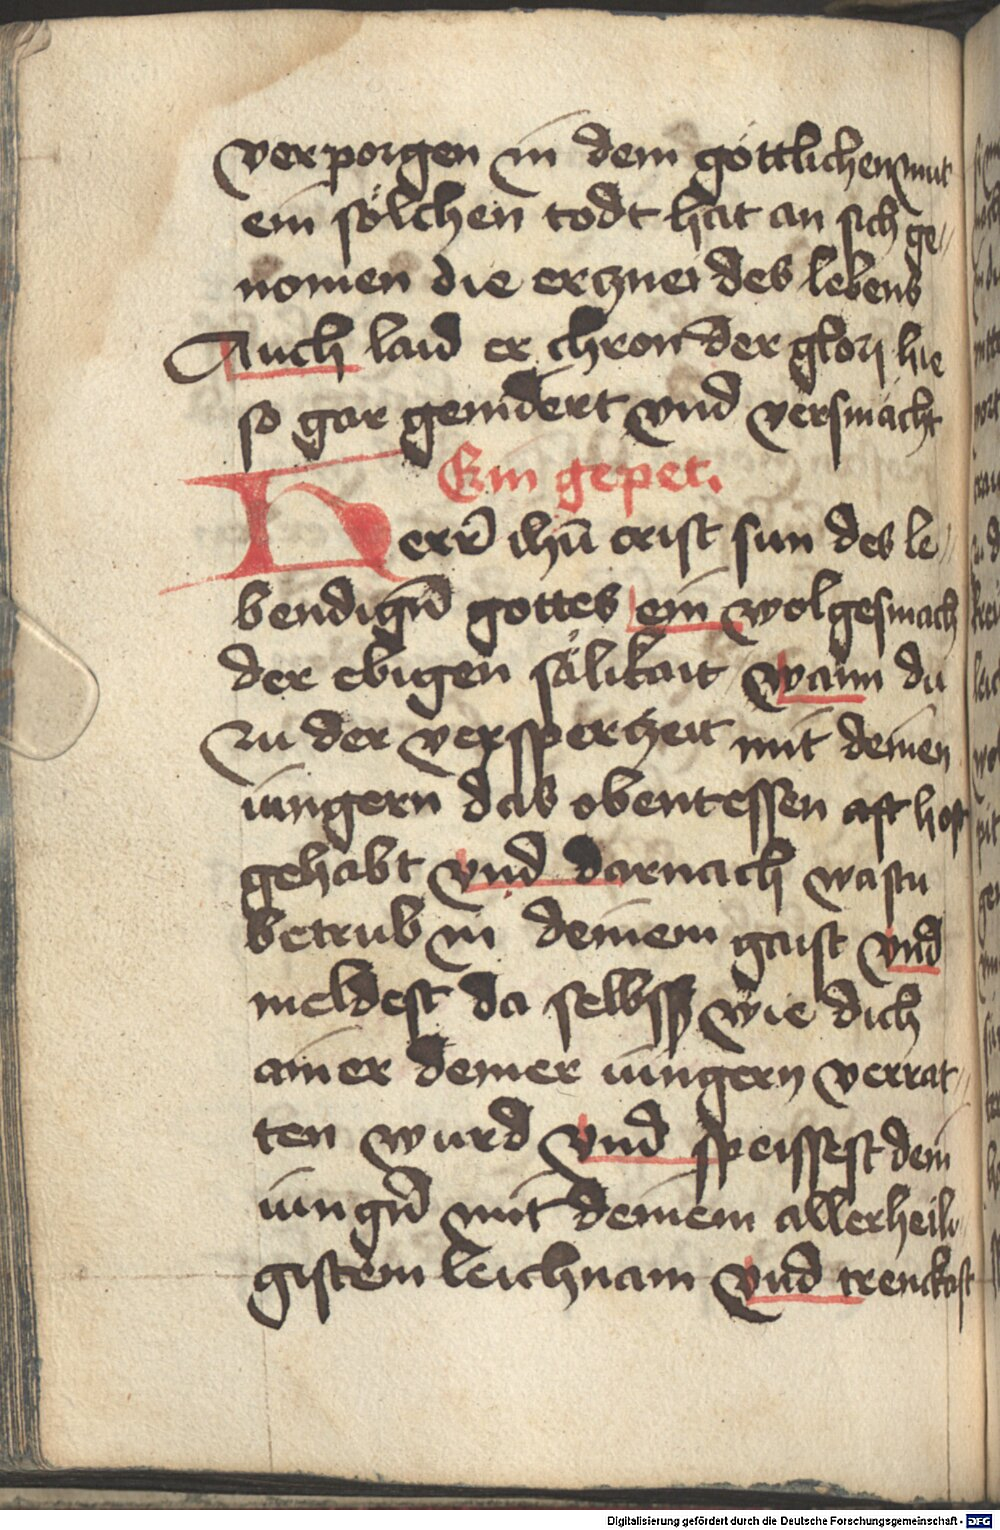 verporgen in dem göttlichen mut
ein sölchen todt hat an sich ge„
nomen die erznei des lebens
Auch laid er chron der glori hie
so gar gemidert vnd versmächt
Ein gepet.
Herr̄ ihū crist sun des le„
bendign̄ gottes ein wolgesmach
der ebigen sälikait wann du
zu der vesperzeit mit deinen
iungern das obentessen aft host
gehabt vnd darnach wastu
betrub in deinem gaist vnd
meldest da selbss wie dich
ainer deiner iungern verrat„
ten wurd vnd speissest dein
iungn̄ mit deinem allerheili„
gistem leichnam vnd trenckast
Digitalisierung gefördert durch die Deutsche Forschungsgemeinschaft - DFG